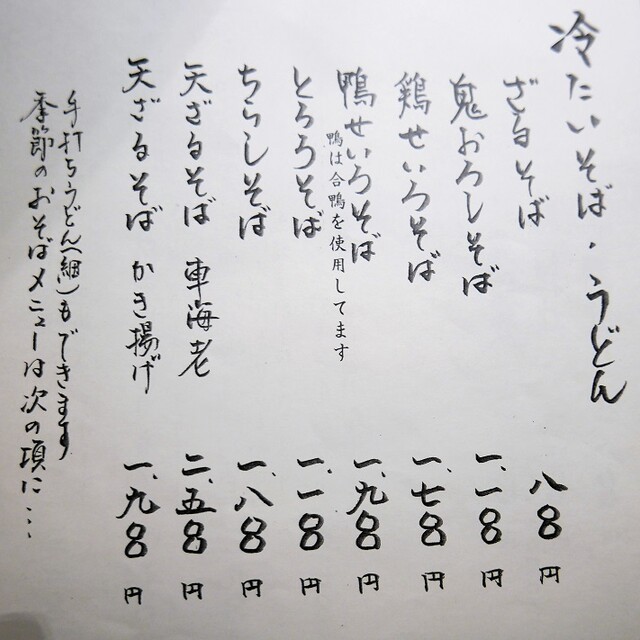 冷たいそば・うどん
ざるそば 八〇〇円
鬼おろしそば 一、一〇〇円
鶏せいろそば 一、七〇〇円
鴨せいろそば 一、九〇〇円
鴨は合鴨を使用してます
とろろそば 一、一〇〇円
ちらしそば 一、八〇〇円
天ざるそば 車海老 二、五〇〇円
天ざるそば かき揚げ 一、九〇〇円
手打ちうどん(細)もできます
季節のおそばメニューは次の項に…